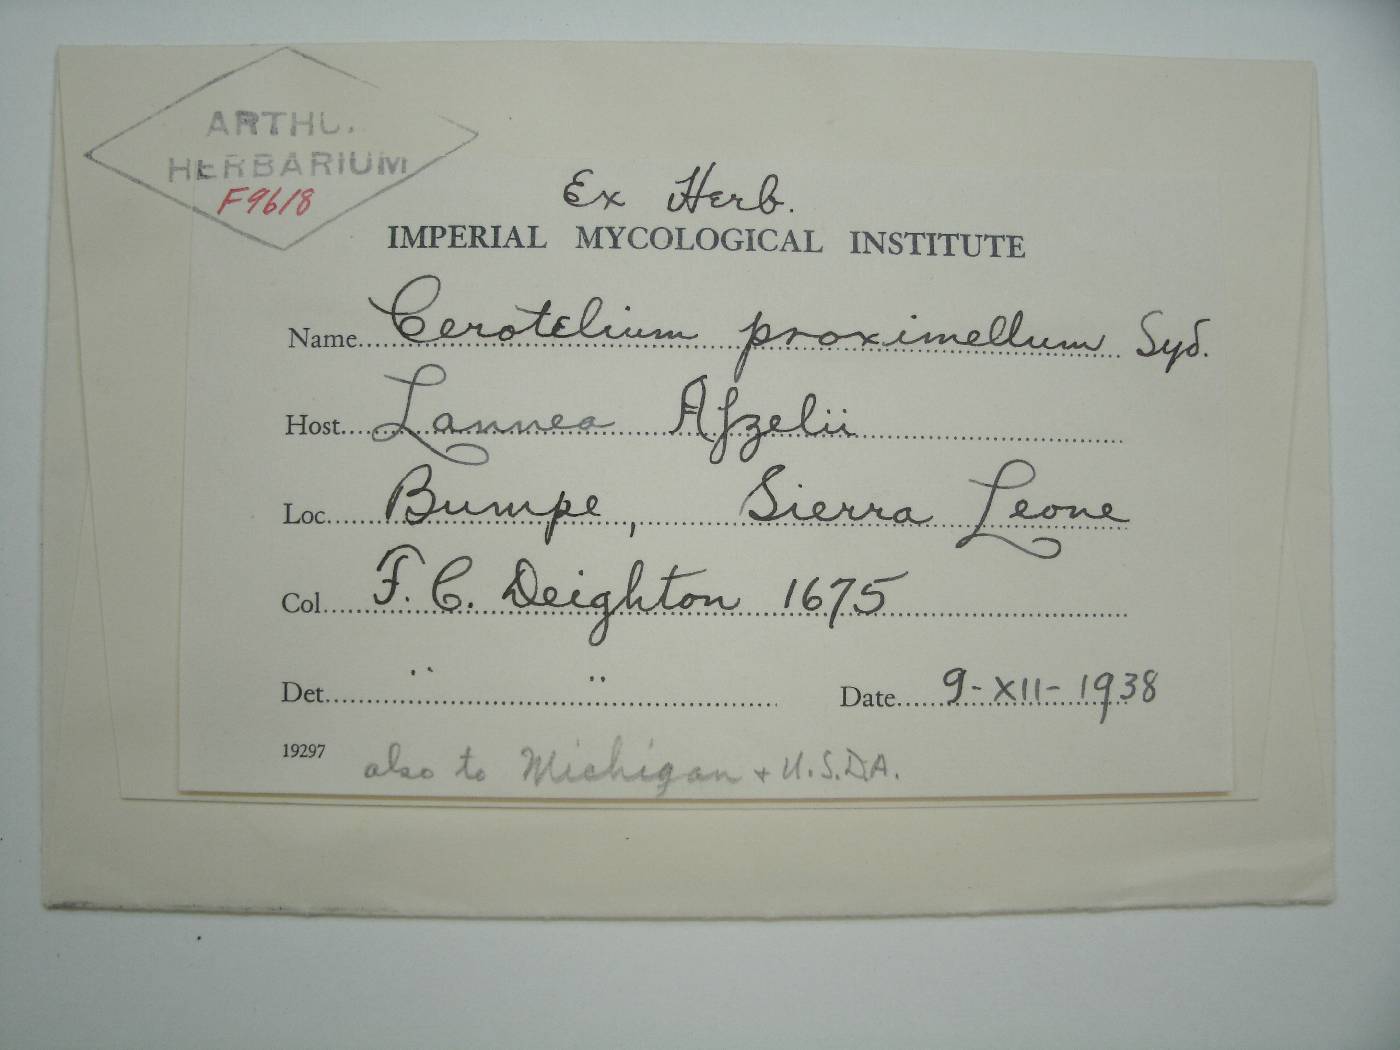 HERBARIUM
F9618
Ex Herb.
IMPERIAL MYCOLOGICAL INSTITUTE
Name Cerotelium proximellum Syd.
Host Lannea Afzelii
Loc Bumpe, Sierra Leone
Col F. C. Deighton 1675
Det " " Date 9-XII-1938
19297 also to Michigan + U.S.D.A.